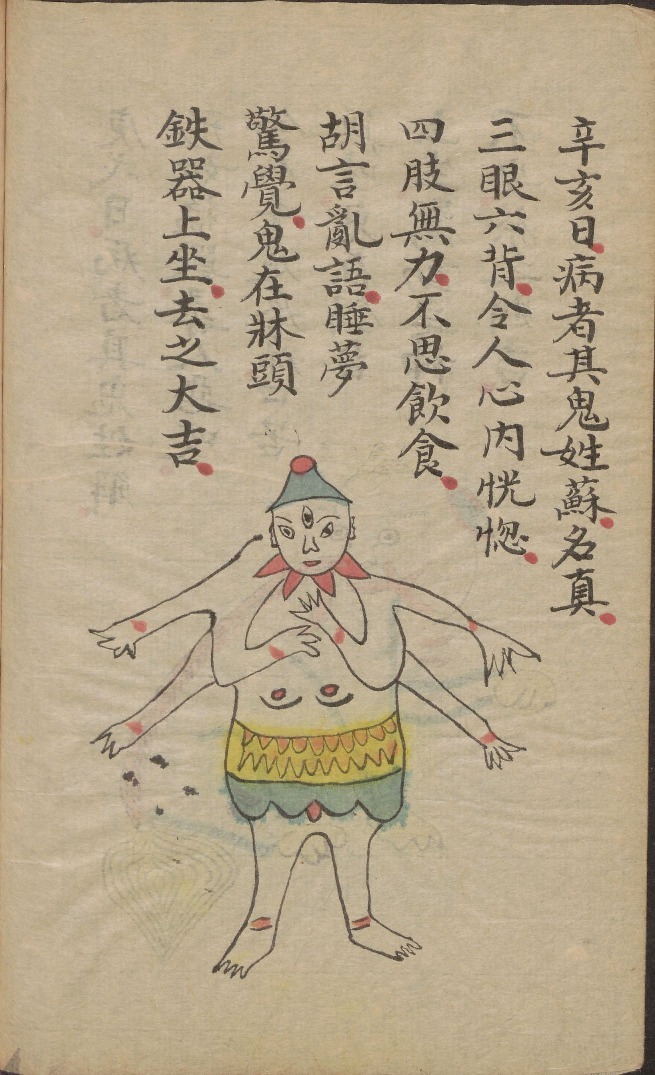 辛亥日病者其鬼姓蘇名真
三眼六背令人心内恍惚
四肢無力不思飲食
胡言亂語睡夢
驚覺鬼在牀頭
鉄器上坐去之大吉